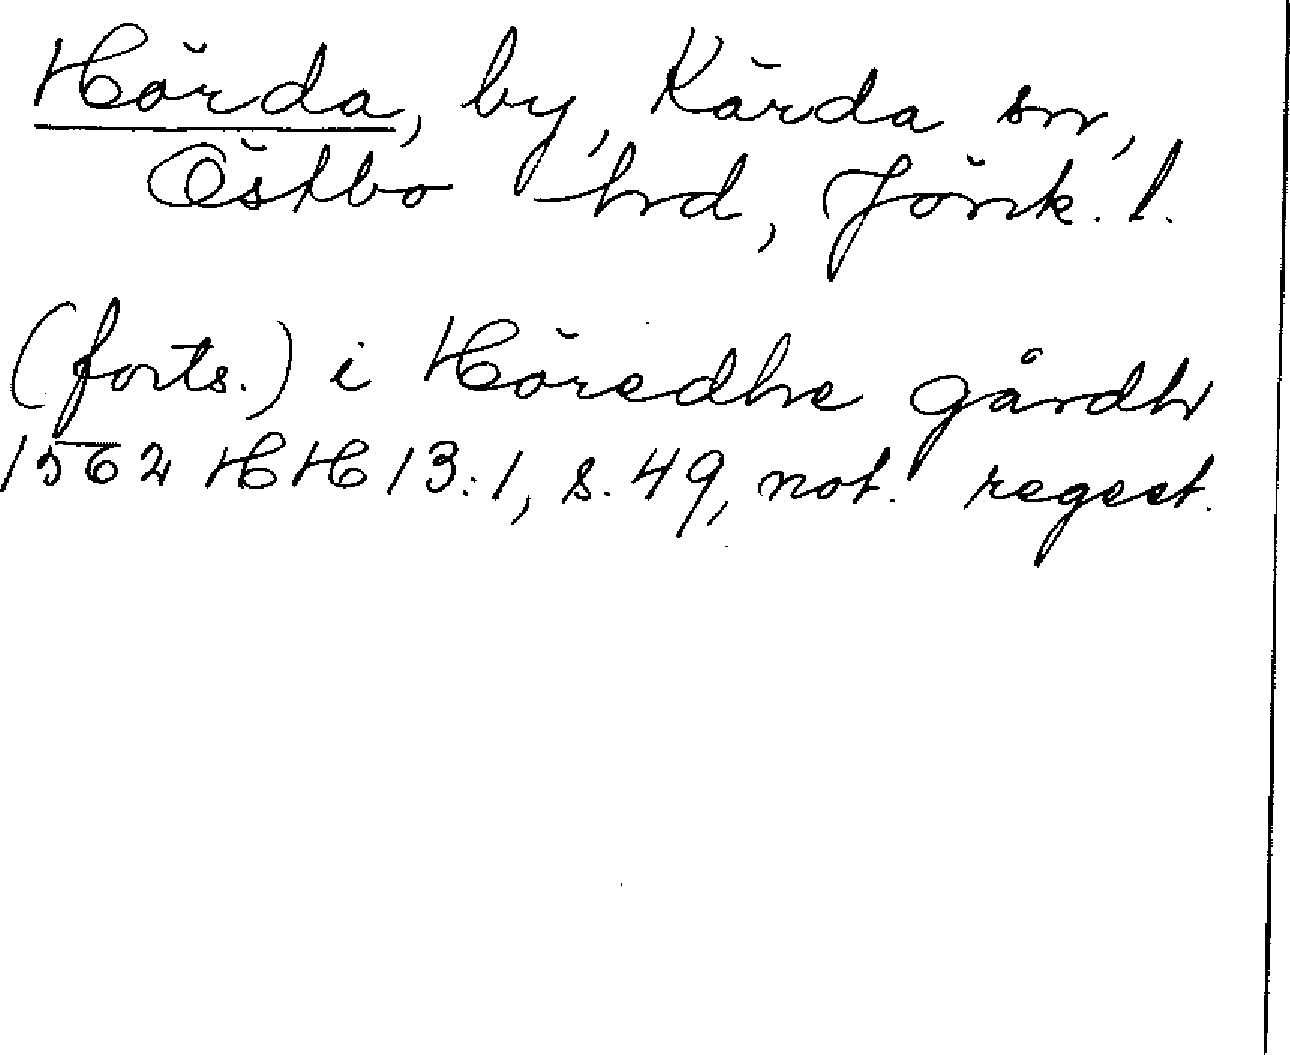 Hörda, by, Kärda sn,
Östbo hrd, Jönk. l.
(forts.) i Höredhe gårdh
1562 HH 13:1, s. 49, not. regest.